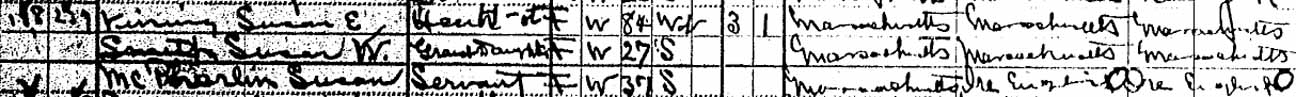 188 237 Susan E. Head F W 84 Wd 3 1 Massachusetts Massachusetts Massachusetts
Smith Susan W. Grand Daughter F W 27 S Massachusetts Massachusetts Massachusetts
McPharlin Susan Servant F W 37 S Massachusetts Ire English Ire English